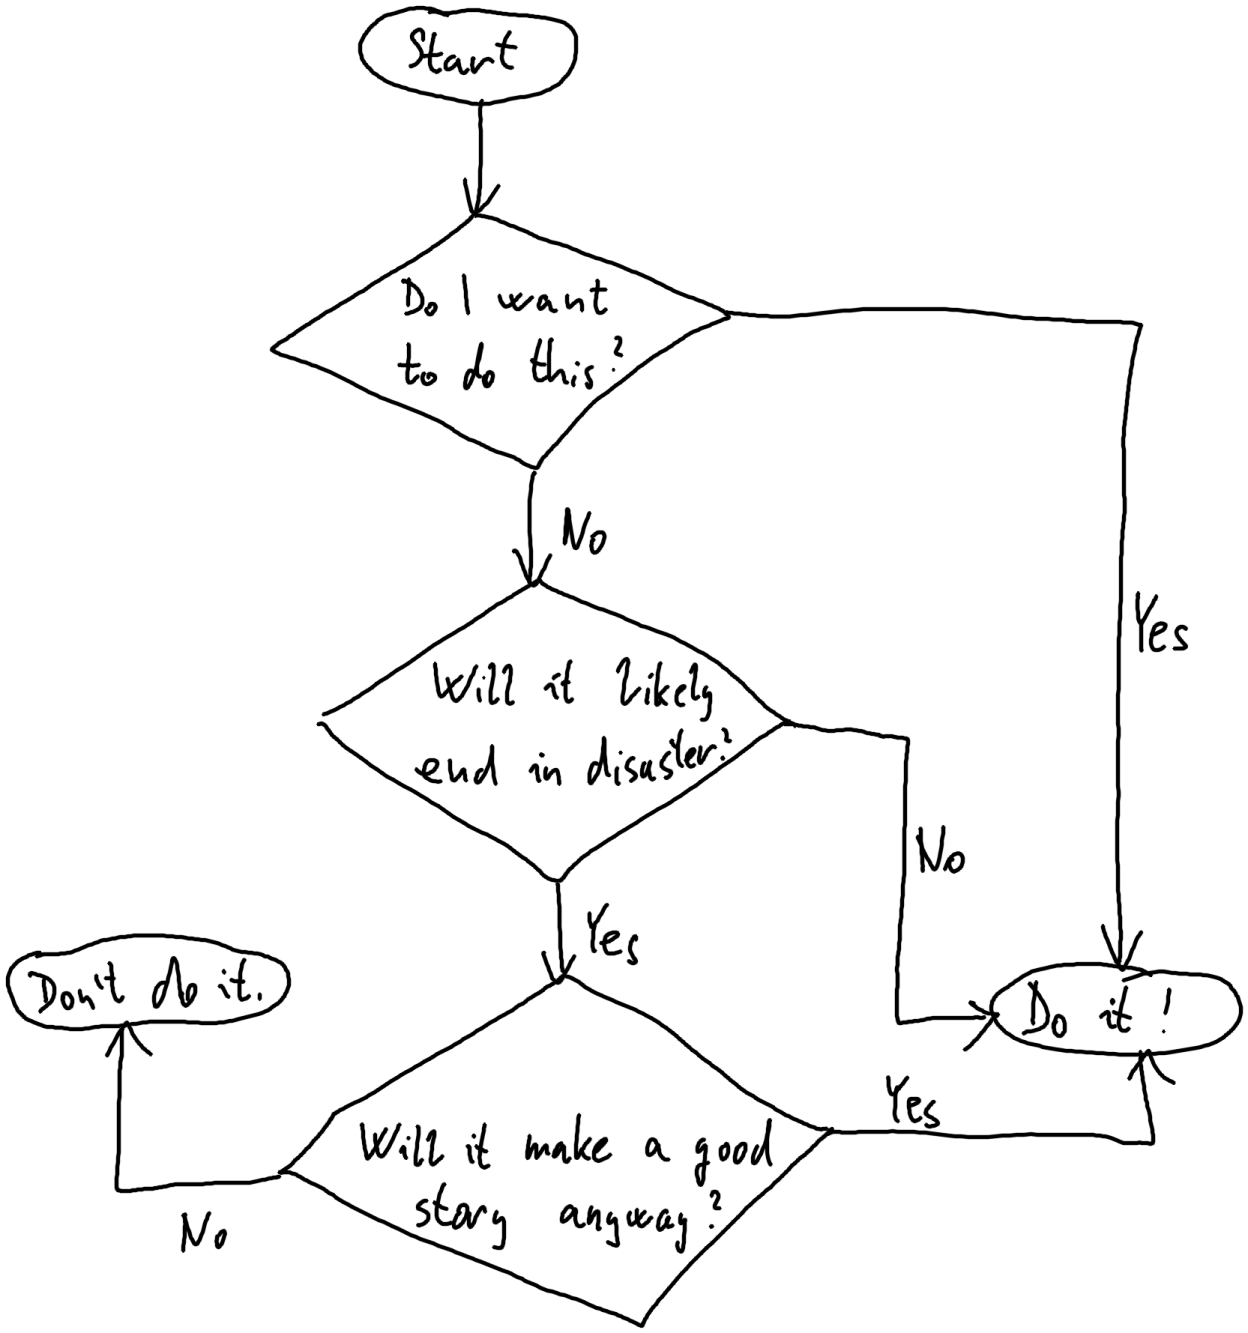 Start
Do I want
to do this?
No
Yes
Will it likely
end in disaster?
No
Yes
Don't do it.
Do it!
Yes
Will it make a good
story anyway?
No